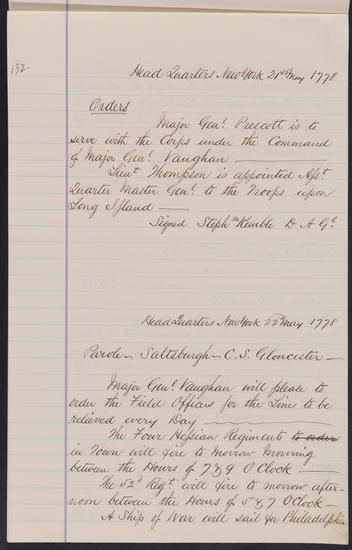 132
Head Quarters New York 21st May 1778
Orders
Major Genl. Prescott is to
serve with the Corps under the Command
of Major Genl. Vaughan
Lieut Thompson is appointed Asst
Quarter Master Genl. to the Troops upon
Long Island
Signed Stephn Kemble D A Gl.
Head Quarters New York 22nd May 1778
Parole - Saltsburgh - C.S. Gloucester -
Major Genl. Vaughan will please to
order the Field Officers for the Line to be
relieved every Day
The Four Hessian Regiments to order
in Town will fire to morrow Morning
between the Hours of 7 & 9 O'Clock
The 52d Regt. will fire to morrow after-
noon between the Hours of 5 & 7 O'Clock -
A Ship of War will sail for Philadelphia